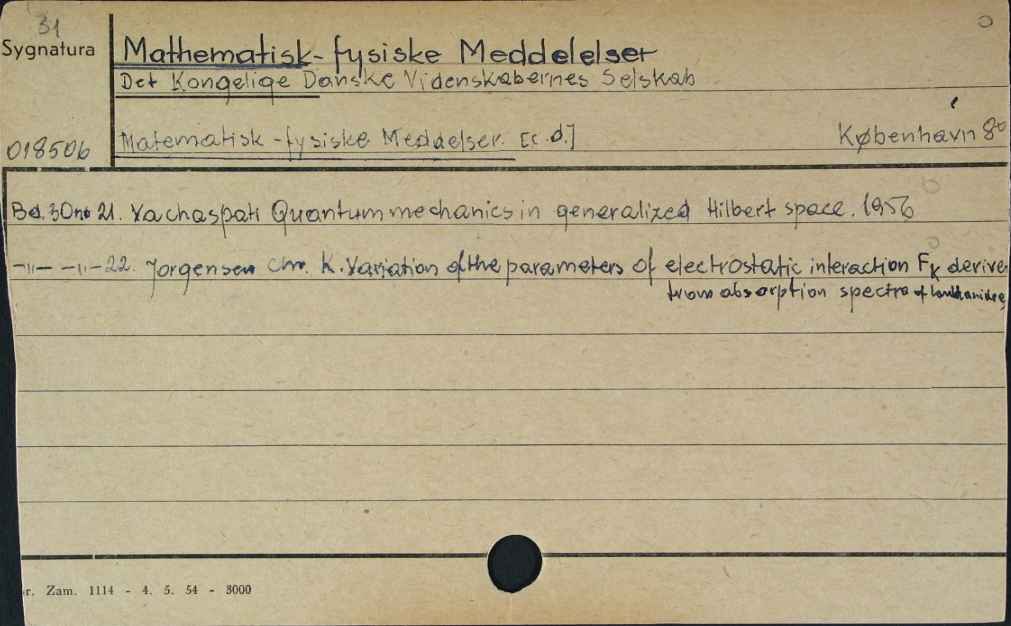 31
Sygnatura
Mathematisk-fysiske Meddelelser
Det Kongelige Danske Videnskabernes Selskab
018506
Matematisk-fysiske Meddelser. [c.d.]
København 8o
Bd. 30 no 21. Vachaspati Quantum mechanics in generalized Hilbert space. 1956
-"- -"- 22. Jorgensen Chr. K. Variation of the parameters of electrostatic interaction Fk derive
from absorption spectra of lanthanides
r. Zam. 1114 - 4. 5. 54 - 3000